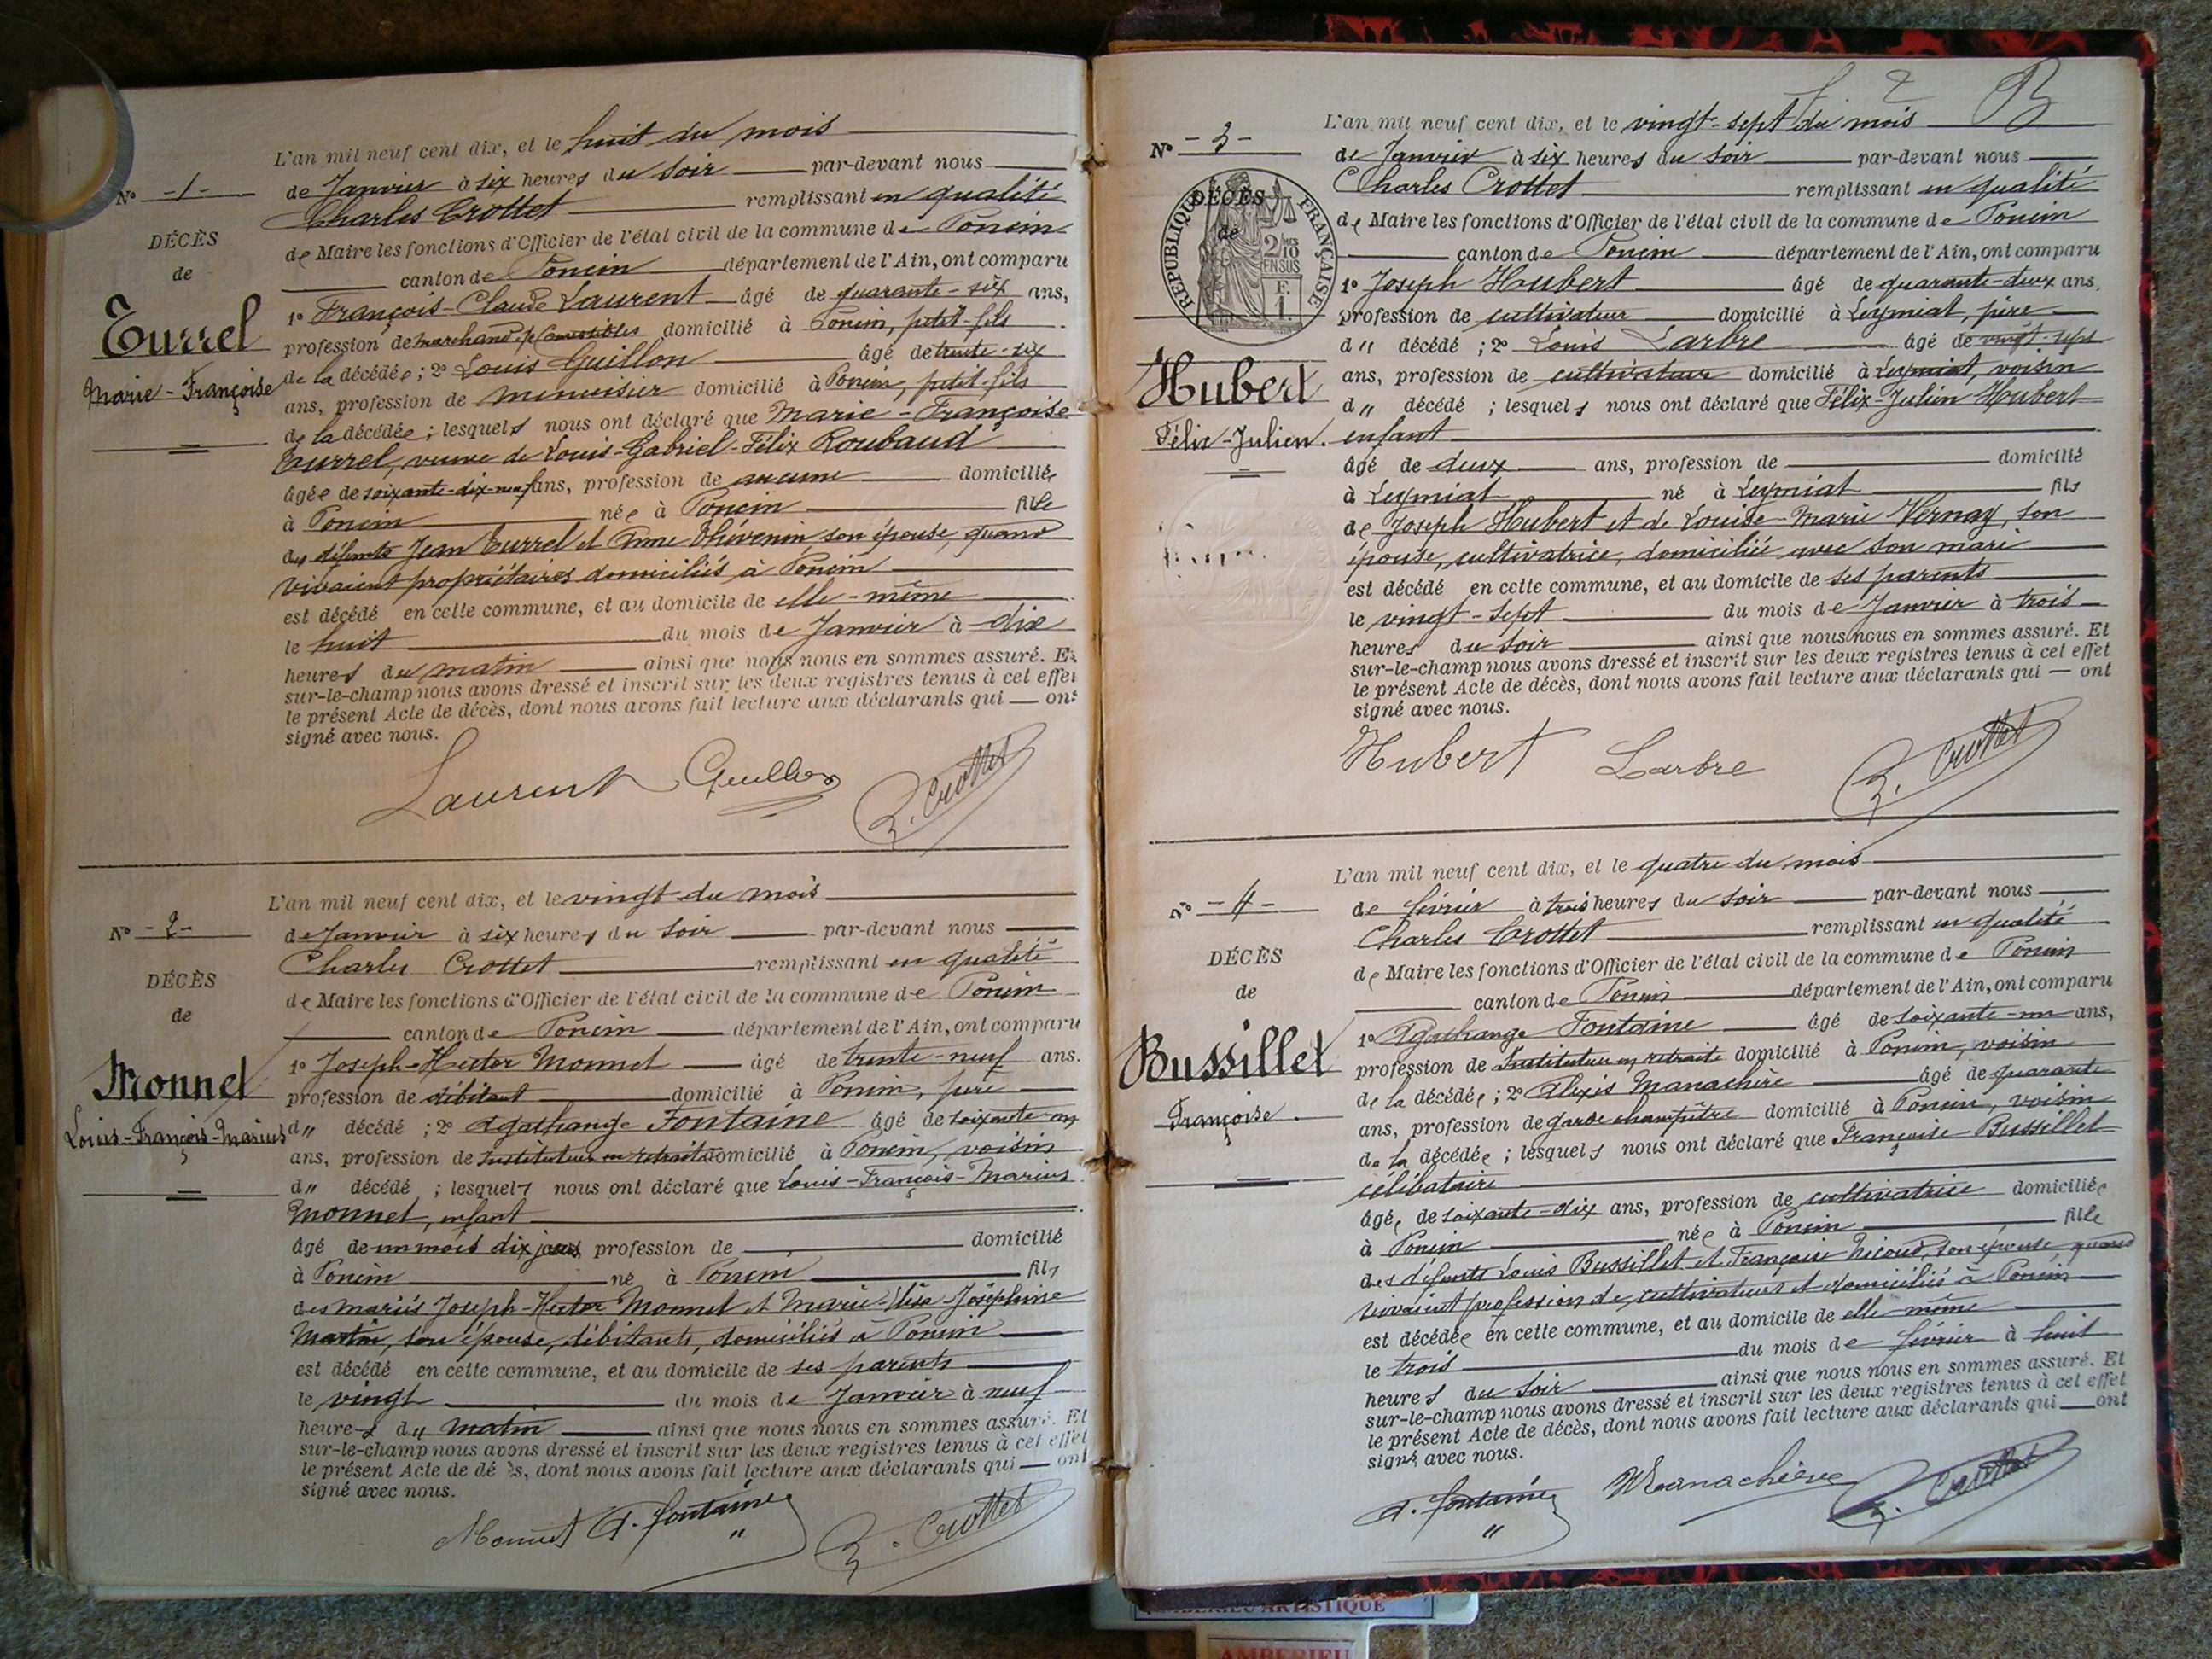 L'an mil neuf cent dix, et le huit du mois
N° -1- de Janvier à six heures du soir par-devant nous
Charles Crottet remplissant en qualité
DÉCÈS
de Maire les fonctions d'Officier de l'état civil de la commune de Poncin
de
canton de Poncin département de l'Ain, ont comparu
1° François-Claude Laurent âgé de quarante-six ans,
Turrel
profession de marchand de comestibles domicilié à Poncin, petit-fils
Marie-Françoise
de la décédée ; 2° Louis Guillon âgé de trente-six
ans, profession de menuisier domicilié à Poncin, petit-fils
de la décédée ; lesquels nous ont déclaré que Marie-Françoise
Turrel, veuve de Louis-Gabriel-Félix Roubaud
âgée de soixante-dix-neuf ans, profession de aucune domiciliée
à Poncin née à Poncin fille
des défunts Jean Turrel et Anne Thévenin son épouse, quand
vivaient propriétaires domiciliés à Poncin
est décédé en cette commune, et au domicile de elle-même
le huit du mois de Janvier à dix
heures du matin ainsi que nous nous en sommes assuré. Et
sur-le-champ nous avons dressé et inscrit sur les deux registres tenus à cet effet
le présent Acte de décès, dont nous avons fait lecture aux déclarants qui — ont
signé avec nous.
Laurent Guillon Ch. Crottet
L'an mil neuf cent dix, et le vingt du mois
N° -2- de Janvier à six heures du soir par-devant nous
Charles Crottet remplissant en qualité
DÉCÈS
de Maire les fonctions d'Officier de l'état civil de la commune de Poncin
de
canton de Poncin département de l'Ain, ont comparu
1° Joseph-Hector Monnet âgé de trente-neuf ans.
Monnet
profession de débitant domicilié à Poncin, père
Louis-François-Marius
du décédé ; 2° Agathange Fontaine âgé de soixante-un
ans, profession de Instituteur en retraite domicilié à Poncin, voisin
du décédé ; lesquels nous ont déclaré que Louis-François-Marius
Monnet, enfant
âgé de un mois dix jours profession de domicilié
à Poncin né à Poncin fils
des mariés Joseph-Hector Monnet et Marie-Elisa-Joséphine
Martin, son épouse, débitants, domiciliés à Poncin
est décédé en cette commune, et au domicile de ses parents
le vingt du mois de Janvier à neuf
heures du matin ainsi que nous nous en sommes assuré. Et
sur-le-champ nous avons dressé et inscrit sur les deux registres tenus à cet effet
le présent Acte de dé ès, dont nous avons fait lecture aux déclarants qui — ont
signé avec nous.
Monnet A. fontaine Ch. Crottet
2
L'an mil neuf cent dix, et le vingt-sept du mois
N° -3- de Janvier à six heures du soir par-devant nous
Charles Crottet remplissant en qualité
DÉCÈS
de
RÉPUBLIQUE FRANÇAISE
2/10 EN SUS
F. 1.
de Maire les fonctions d'Officier de l'état civil de la commune de Poncin
canton de Poncin département de l'Ain, ont comparu
1° Joseph Hubert âgé de quarante-deux ans,
profession de cultivateur domicilié à Leymiat, père
du décédé ; 2° Louis Larbre âgé de vingt-sept
Hubert
ans, profession de cultivateur domicilié à Leymiat, voisin
du décédé ; lesquels nous ont déclaré que Félix-Julien Hubert
Félix-Julien.
enfant
âgé de deux ans, profession de domicilié
à Leymiat né à Leymiat fils
de Joseph Hubert et de Louise-Marie Vernay, son
épouse, cultivatrice, domiciliée avec son mari
est décédé en cette commune, et au domicile de ses parents
le vingt-sept du mois de Janvier à trois
heures du soir ainsi que nous nous en sommes assuré. Et
sur-le-champ nous avons dressé et inscrit sur les deux registres tenus à cet effet
le présent Acte de décès, dont nous avons fait lecture aux déclarants qui — ont
signé avec nous.
Hubert Larbre Ch. Crottet
L'an mil neuf cent dix, et le quatre du mois
N° -4- de février à trois heures du soir par-devant nous
Charles Crottet remplissant en qualité
DÉCÈS
de Maire les fonctions d'Officier de l'état civil de la commune de Poncin
de
canton de Poncin département de l'Ain, ont comparu
1° Agathange Fontaine âgé de soixante-un ans,
Bussillet
profession de Instituteur en retraite domicilié à Poncin, voisin
Françoise.
de la décédée ; 2° Alexis Manachère âgé de quarante
ans, profession de garde champêtre domicilié à Poncin, voisin
de la décédée ; lesquels nous ont déclaré que Françoise Bussillet
célibataire
âgée de soixante-dix ans, profession de cultivatrice domiciliée
à Poncin née à Poncin fille
des défunts Louis Bussillet et Françoise Nicoud, son épouse, quand
vivaient profession de cultivateurs et domiciliés à Poncin
est décédée en cette commune, et au domicile de elle même
le trois du mois de février à huit
heures du soir ainsi que nous nous en sommes assuré. Et
sur-le-champ nous avons dressé et inscrit sur les deux registres tenus à cet effet
le présent Acte de décès, dont nous avons fait lecture aux déclarants qui — ont
signé avec nous.
A. fontaine Manachère Ch. Crottet
AMBERIEU ARTISTIQUE
AMBERIEU